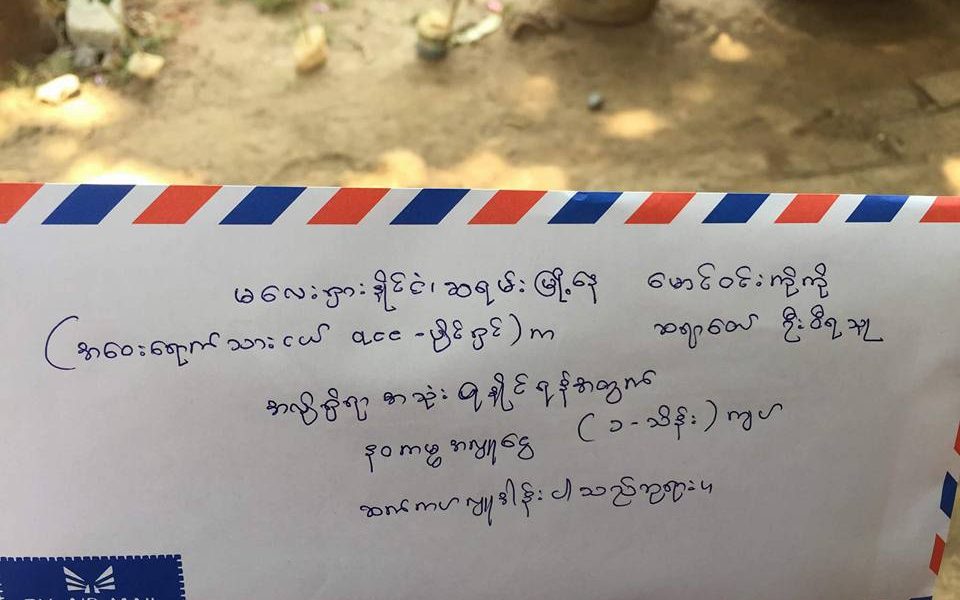 မလေးရှားနိုင်ငံ၊ ဆရမ်းမြို့နေ မောင်ဝင်းကိုကို
(အဝေးရောက်သားငယ် ace - မှိုင်ဂွင်) က ဆရာတော် ဦးဝီရသူ
အလိုရှိရာ အသုံးပြုနိုင်ရန်အတွက်
နဝကမ္မအလှူငွေ (၁ - သိန်း) ကျပ်
ဆက်ကပ်လှူဒါန်းပါသည်ဘုရား။